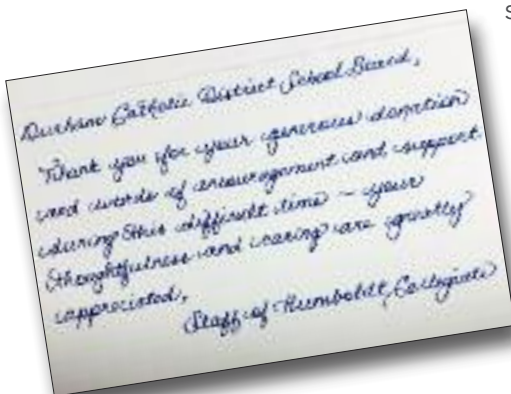 Durham Catholic District School Board,
Thank you for your generous donation
and words of encouragement and support
during this difficult time – your
thoughtfulness and caring are greatly
appreciated,
Staff of Humboldt Collegiate
S